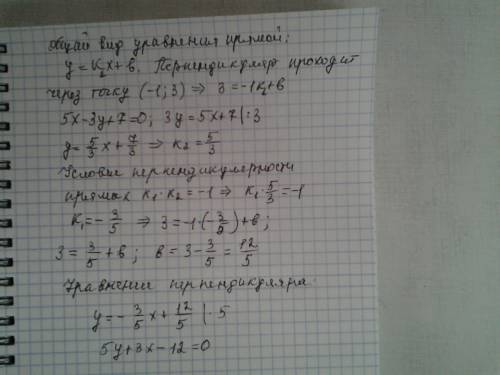 Общий вид уравнения прямой:
y=k₂x+b. Перпендикуляр проходит
через точку (-1; 3) ⇒ 3=-1k₁+b
5x-3y+7=0; 3y=5x+7|:3
y=5/3 x+7/3 ⇒ k₂=5/3
Условие перпендикулярности
прямых k₁·k₂=-1 ⇒ k₁·5/3=-1
k₁=-3/5 ⇒ 3=-1·(-3/5)+b;
3=3/5+b; b=3-3/5=12/5
Уравнение перпендикляра:
y=-3/5 x+12/5 |·5
5y+3x-12=0